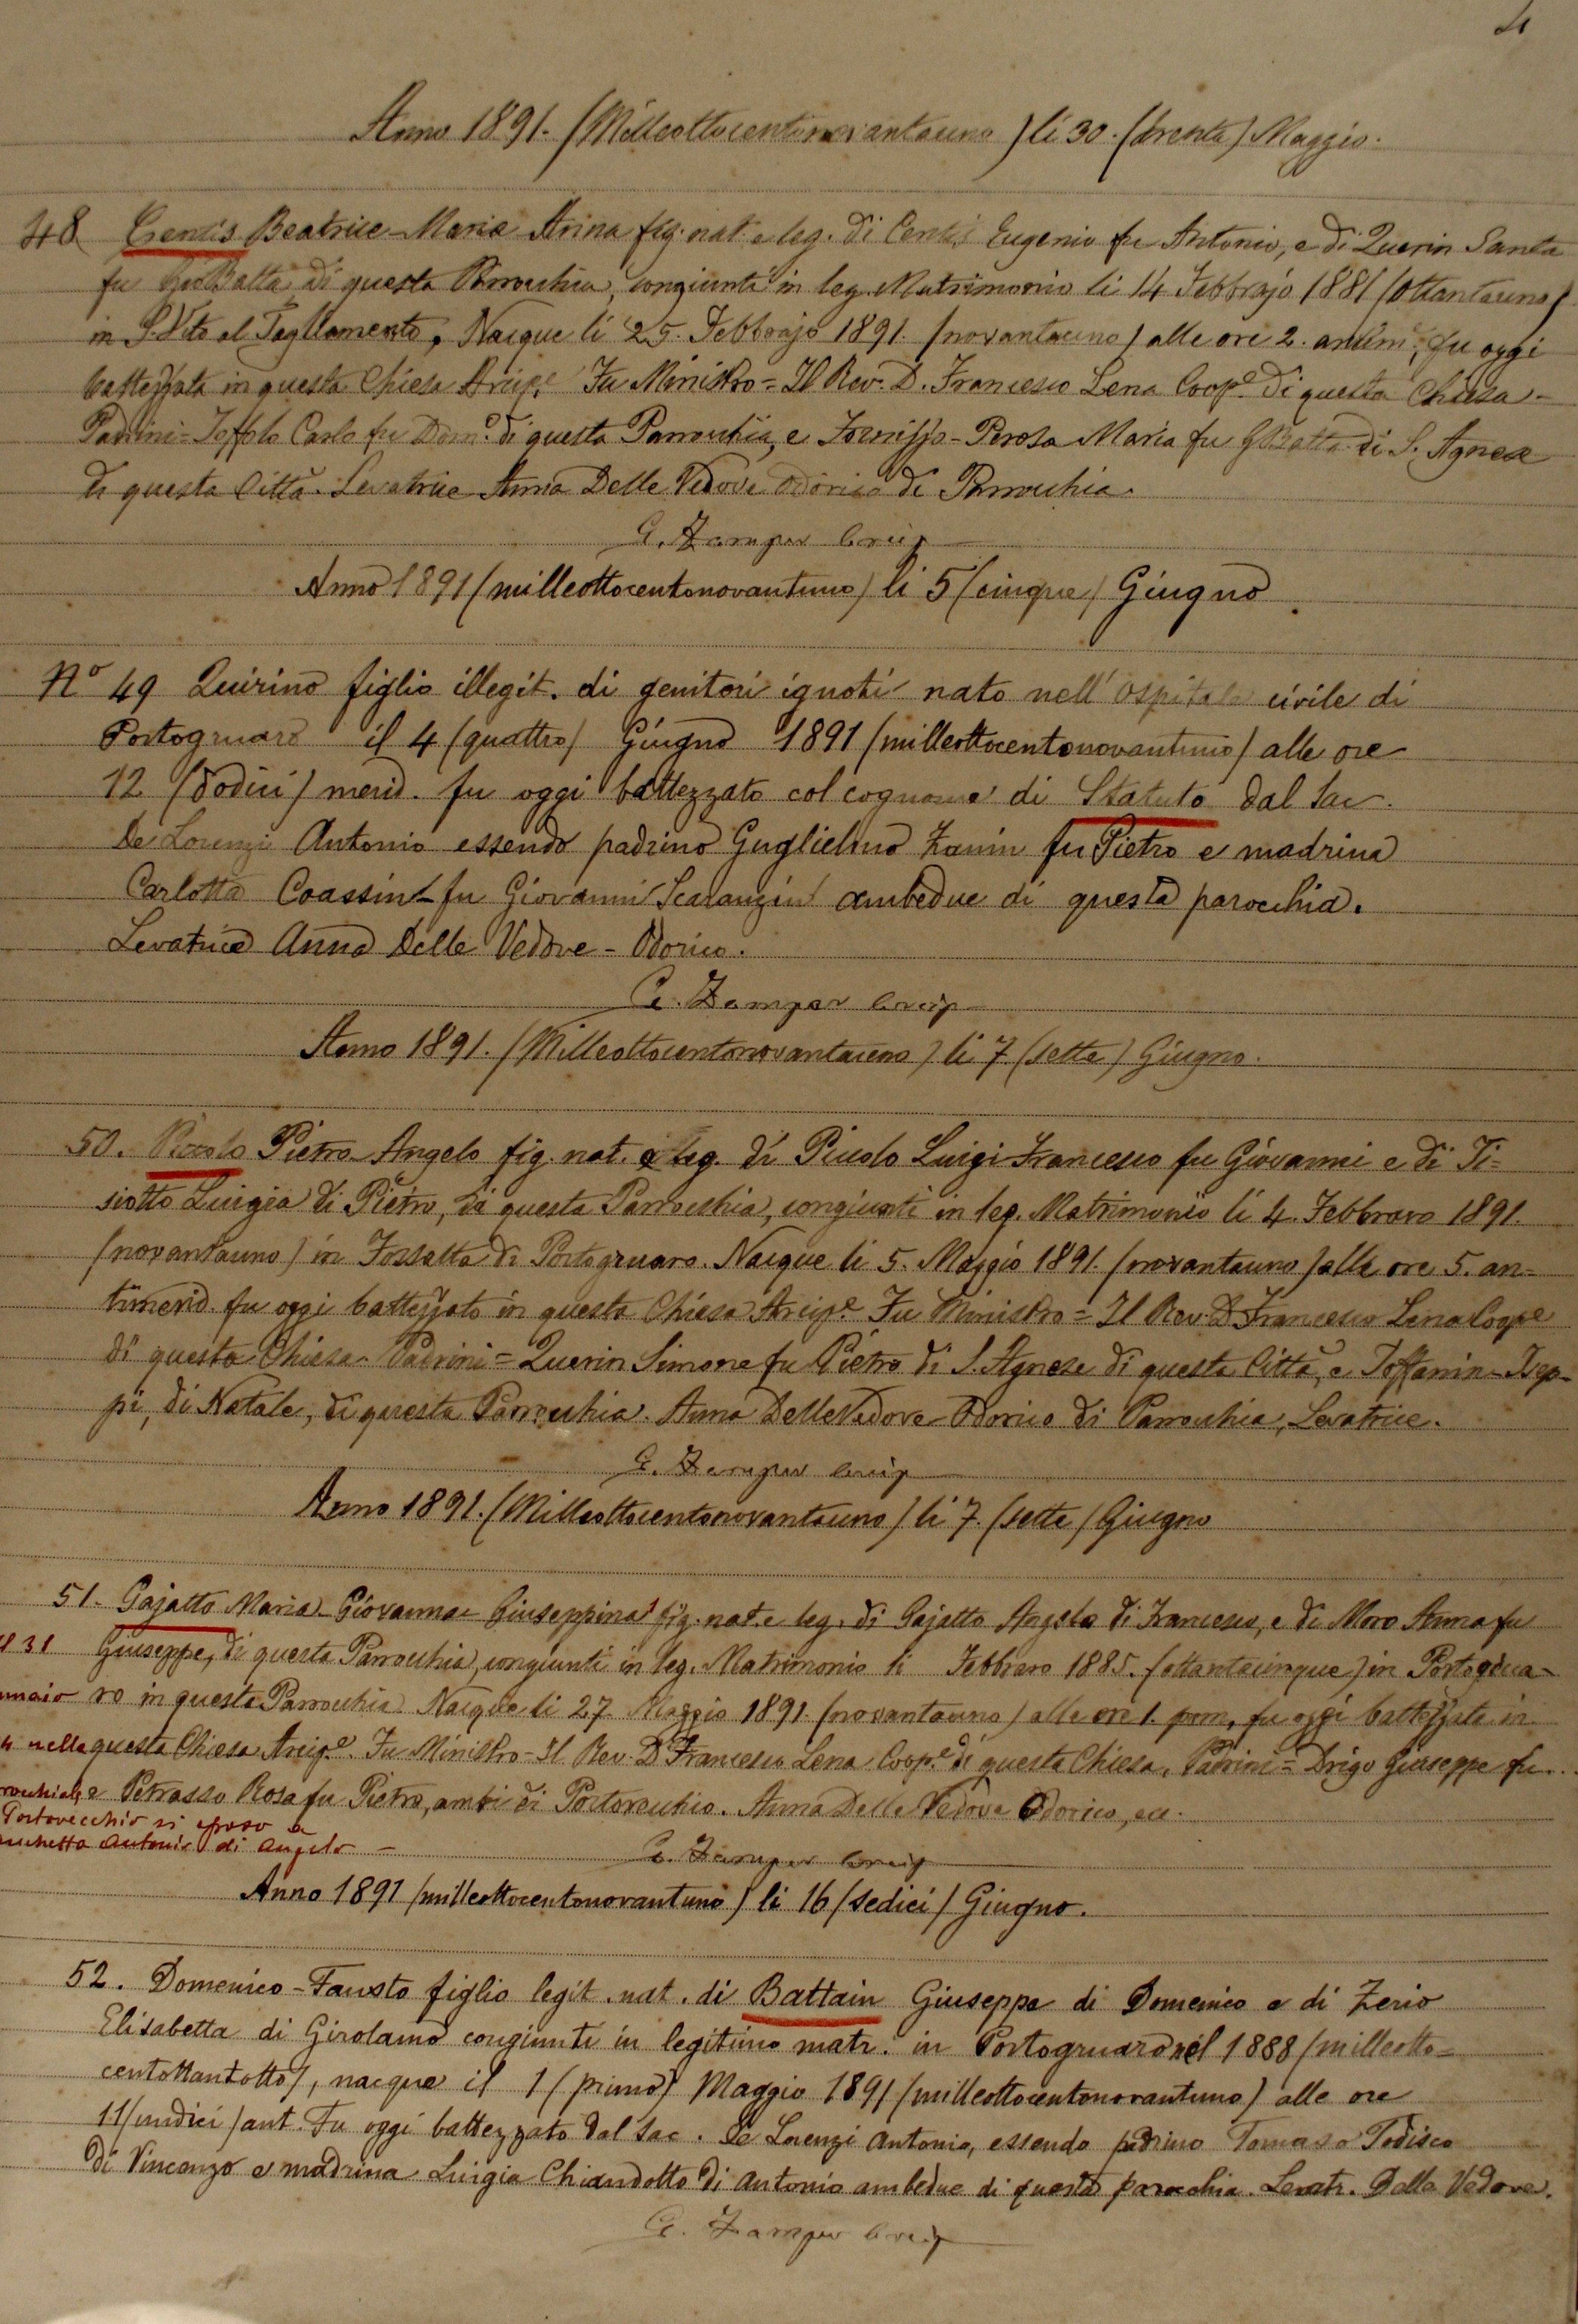 4
Anno 1891. (Milleottocentonovantauno) li 30. (trenta) Maggio.
48 Centis Beatrice-Maria-Anna fig. nat. e leg. di Centis Eugenio fu Antonio, e di Querin Santa
fu Gio Batta, di questa Parrochia, congiunti in leg. Matrimonio li 14 Febbrajo 1881 (ottantauno)
in S. Vito al Tagliamento, Nacque li 25. Febbrajo 1891. (novantauno) alle ore 2. antim., fu oggi
battezzata in questa Chiesa Arcip.e Fu Ministro = Il Rev. D. Francesco Lena Coop.e di questa Chiesa -
Padrini = Toffolo Carlo fu Dom.o di questa Parrochia, e - Perosa Maria fu GBatta di S. Agnese
di questa Città. Levatrice Anna Delle Vedove Odorico di Parrochia.
G. Zamper Arcip
Anno 1891 (milleottocentonovantuno) li 5 (cinque) Giugno.
No 49 Quirino figlio illegit. di genitori ignoti nato nell'ospitale civile di
Portogruaro il 4 (quattro) Giugno 1891 (milleottocentonovantuno) alle ore
12 (dodici) merid. fu oggi battezzato col cognome di Statuto dal Sac.
De Lorenzi Antonio essendo padrino Guglielmo Zanin fu Pietro e madrina
Carlotta Coassin - fu Giovanni ambedue di questa parocchia.
Levatrice Anna Delle Vedove - Odorico.
G. Zamper Arcip
Anno 1891. (Milleottocentonovantauno) li 7. (sette) Giugno.
50. Piccolo Pietro-Angelo fig. nat. e leg. di Piccolo Luigi-Francesco fu Giovanni e di Ti=
siotto Luigia di Pietro, di questa Parrochia, congiunti in leg. Matrimonio li 4. Febbraro 1891.
(novantauno) in Fossalta di Portogruaro. Nacque li 5. Maggio 1891. (novantauno) alle ore 5. an=
timerid. fu oggi battezzato in questa Chiesa Arcip.e Fu Ministro = Il Rev. D. Francesco Lena Coop.e
di questa Chiesa - Padrini = Querin Simone fu Pietro di S. Agnese di questa Città, e Toffanin-Isep-
pi, di Natale, di questa Parrochia. Anna Delle Vedove-Odorico di Parrochia, Levatrice.
G. Zamper Arcip
Anno 1891. (Milleottocentonovantauno) li 7. (sette) Giugno
51. Gajatto Maria-Giovanna-Giuseppina fig. nat. e leg. di Gajatto Angelo di Francesco, e di Moro Anna fu
Giuseppe, di questa Parrochia, congiunti in leg. Matrimonio li Febbraro 1885. (ottantacinque) in Portogrua-
ro in questa Parrochia. Nacque li 27. Maggio 1891. (novantauno) alle ore 1. pom., fu oggi battezzata in
questa Chiesa Arcip.e. Fu Ministro - Il Rev. D. Francesco Lena Coop.e di questa Chiesa. Padrini = Drigo Giuseppe fu...
e Petrasso Rosa fu Pietro, ambi di Portovecchio. Anna Delle Vedove Odorico, ecc.
31
nnaio
nella
rrochiale
Portovecchio si sposò a
cchetto Antonio di Angelo -
G. Zamper Arcip
Anno 1891 (milleottocentonovantuno) li 16 (sedici) Giugno.
52. Domenico-Fausto figlio legit. nat. di Battain Giuseppe di Domenico e di Zerio
Elisabetta di Girolamo congiunti in legitimo matr. in Portogruaro nel 1888 (milleotto=
centottantotto), nacque il 1 (primo) Maggio 1891 (milleottocentonovantuno) alle ore
11 (undici) ant. Fu oggi battezzato dal Sac. De Lorenzi Antonio, essendo padrino Tomaso Todisco
di Vincenzo e madrina Luigia Chiandotto di Antonio ambedue di questa parocchia. Levatr. Dalle Vedove.
G. Zamper Arcip